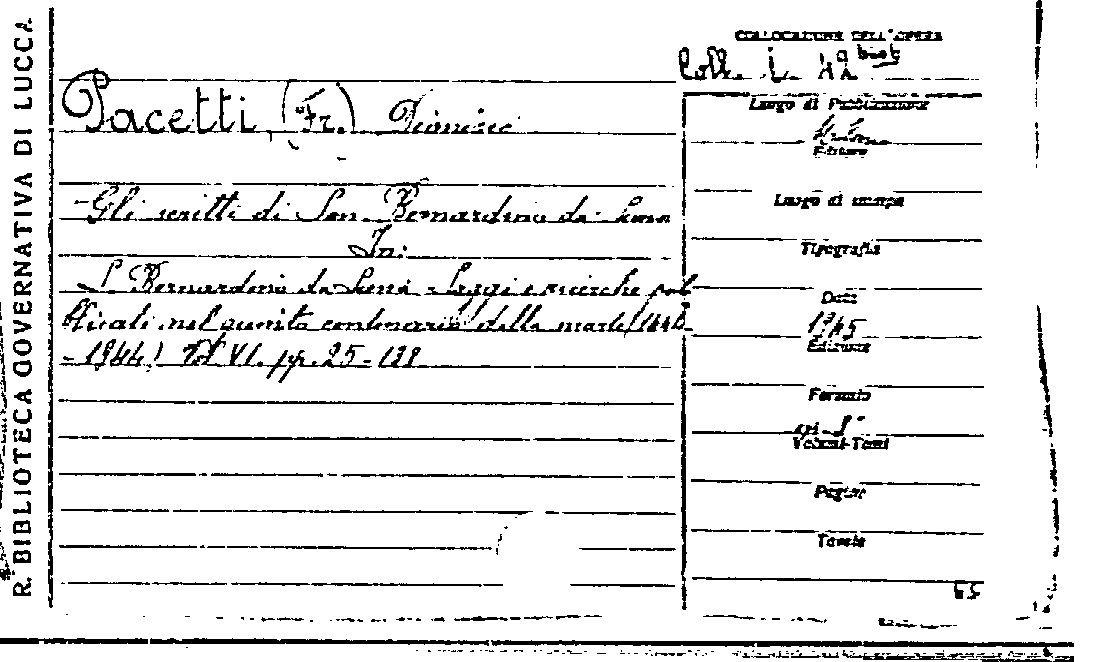 R. BIBLIOTECA GOVERNATIVA DI LUCCA
COLLOCAZIONE DELL'OPERA
Coll. L. 42 bis
Pacetti, (Fr.) Dionisio
Luogo di Pubblicazione
Editore
- Gli scritti di San Bernardino da Siena
Luogo di stampa
In:
Tipografia
S. Bernardino da Siena - Saggi e ricerche pub-
Data
blicati nel quinto centenario della morte (1444-
1945
- 1944) Vol VI. pp. 25-138
Edizione
Formato
Volumi-Tomi
Pagine
Tavole